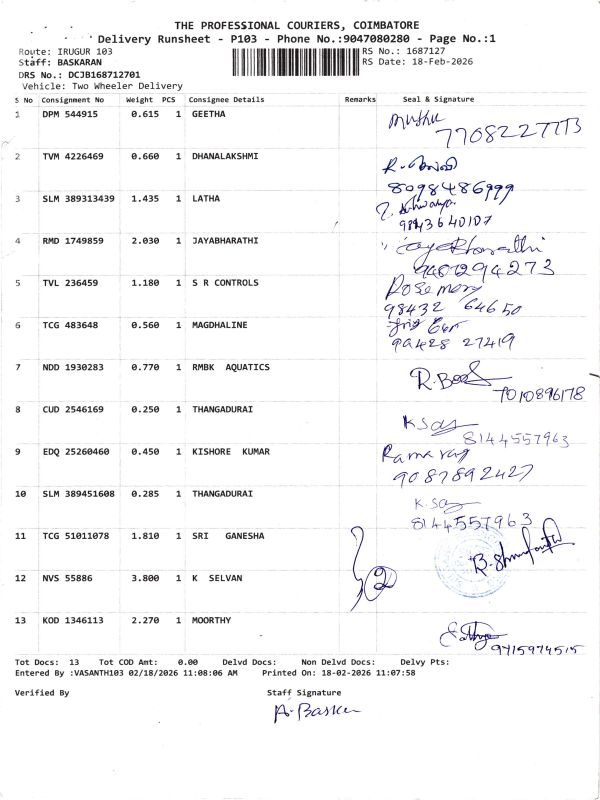 THE PROFESSIONAL COURIERS, COIMBATORE
Delivery Runsheet - P103 - Phone No.:9047080280 - Page No.:1
Route: IRUGUR 103 RS No.: 1687127
Staff: BASKARAN RS Date: 18-Feb-2026
DRS No.: DCJB168712701
Vehicle: Two Wheeler Delivery
S No Consignment No Weight PCS Consignee Details Remarks Seal & Signature
1 DPM 544915 0.615 1 GEETHA Muthu
2 TVM 4226469 0.660 1 DHANALAKSHMI
8098486999
3 SLM 389313439 1.435 1 LATHA
9843640107
4 RMD 1749859 2.030 1 JAYABHARATHI Jayabharathi
9487294273
5 TVL 236459 1.180 1 S R CONTROLS Rosemary
98432 64650
6 TCG 483648 0.560 1 MAGDHALINE
99428 27419
7 NDD 1930283 0.770 1 RMBK AQUATICS
7010896178
8 CUD 2546169 0.250 1 THANGADURAI
8144557963
9 EDQ 25260460 0.450 1 KISHORE KUMAR Ramaraj
9087892427
10 SLM 389451608 0.285 1 THANGADURAI
8144557963
11 TCG 51011078 1.810 1 SRI GANESHA
12 NVS 55886 3.800 1 K SELVAN 2
13 KOD 1346113 2.270 1 MOORTHY Sathya
9715974515
Tot Docs: 13 Tot COD Amt: 0.00 Delvd Docs: Non Delvd Docs: Delvy Pts:
Entered By :VASANTH103 02/18/2026 11:08:06 AM Printed On: 18-02-2026 11:07:58
Verified By Staff Signature
A. Baskar